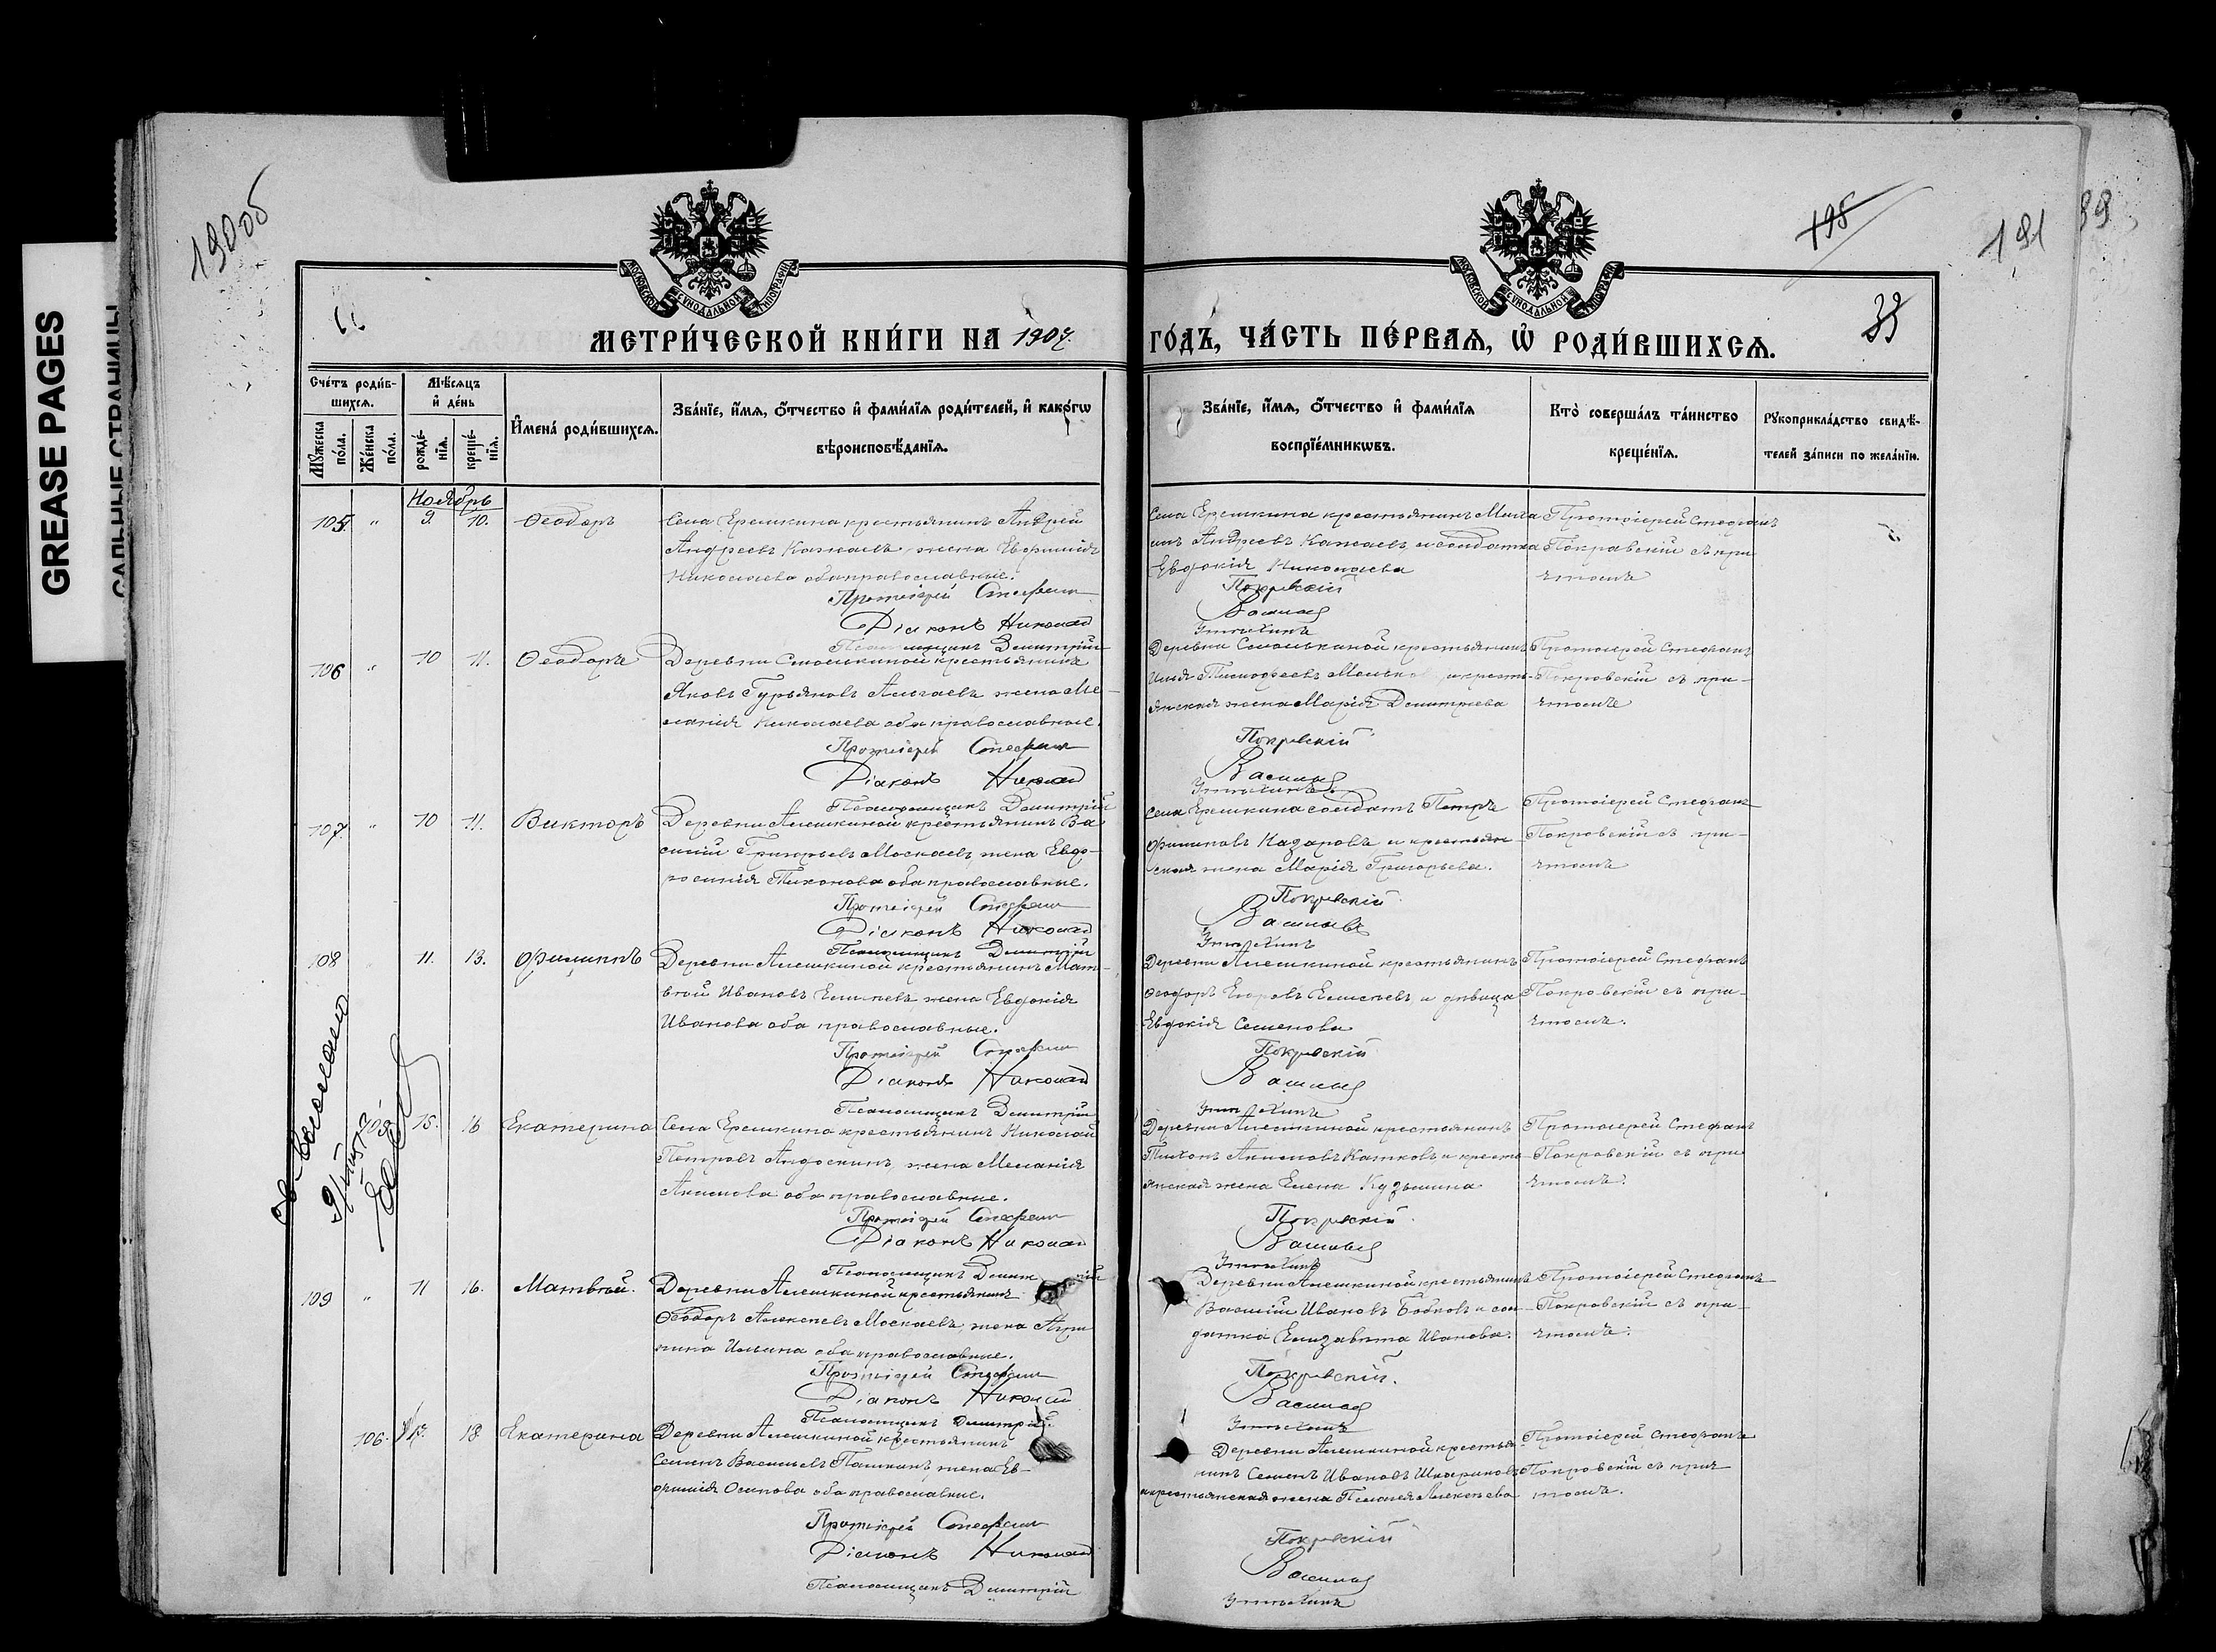 GREASE PAGES
САЛЬНЫЕ СТРАНИЦЫ
190об
195
191
39
МОСКОВСКОЙ СУНОДАЛЬНОЙ ТИПОГРАФІИ
МОСКОВСКОЙ СУНОДАЛЬНОЙ ТИПОГРАФІИ
МЕТРИ́ЧЕСКОЙ КНИ́ГИ НА 1907
ГО́ДЪ, ЧА́СТЬ ПЕ́РВАѦ, Ѡ҆ РОДИ́ВШИХСѦ.
Сче́тъ роди́в-
шихсѧ.
Мꙋ́жеска по́ла.
Же́нска по́ла.
Мѣ́сѧцъ
и҆ де́нь
рожде́-
нїѧ.
креще́-
нїѧ.
И҆мена̀ роди́вшихсѧ.
Зва́нїе, и҆́мѧ, ѻ҆́тчество и҆ фами́лїѧ роди́телей, и҆ како́гѡ
вѣроисповѣ́данїѧ.
Зва́нїе, и҆́мѧ, ѻ҆́тчество и҆ фами́лїѧ
воспрїе́мникѡвъ.
Кто̀ соверша́лъ та́инство
креще́нїѧ.
Рꙋкоприкла́дство свидѣ́-
телей за́писи по жела́нїю.
Ноябрь
105. " 9. 10. Ѳеодоръ
Села Ерешкина крестьянинъ Андрей
Андреевъ Кажаевъ, жена Евфимія
Николаева оба православные.
Протоіерей Стефанъ
Діаконъ Николай
Псаломщикъ Димитрій
Села Ерешкина крестьянинъ Миха
илъ Андреевъ Кажаевъ и солдатка
Евдокія Николаева
Покровскій
Васильев
Утѣхинъ
Протоіерей Стефанъ
Покровскій съ при
чтомъ
106 " 10 11. Ѳеодоръ
Деревни крестьянинъ
Яковъ Гурьяновъ жена Ме-
ланія Николаева оба православные.
Протоіерей Стефанъ
Діаконъ Николай
Псаломщикъ Димитрій
Деревни крестьянинъ
Илія Тимофеевъ и кресть-
янская жена Марія Димитріева
Покровскій
Васильев
Утѣхинъ
Протоіерей Стефанъ
Покровскій съ при-
чтомъ
107. " 10 11. Викторъ
Деревни Алешкиной крестьянинъ Ва
силій Григорьевъ Москаевъ, жена Евф-
росинія Тихонова оба православные.
Протоіерей Стефанъ
Діаконъ Николай
Псаломщикъ Димитрій
Села Ерешкина солдатъ Петръ
Филиповъ Назаровъ, и крестьян-
ская жена Марія Григорьева.
Покровскій
Васильевъ
Утѣхинъ
Протоіерей Стефанъ
Покровскій съ при-
чтомъ
108 11. 13. Филиппъ
Деревни Алешкиной крестьянинъ Мат-
вѣй Ивановъ Елисѣевъ, жена Евдокія
Иванова оба православные.
Протоіерей Стефанъ
Діаконъ Николай
Псаломщикъ Димитрій
Деревни Алешкиной крестьянинъ
Ѳеодоръ Егоровъ Елисѣевъ и дѣвица
Евдокія Семенова
Покровскій
Васильев
Утѣхинъ
Протоіерей Стефанъ
Покровскій съ при-
чтомъ.
105. 15. 16 Екатерина
Села Ерешкина крестьянинъ Николай
Петровъ Андоскинъ, жена Меланія
Акимова оба православные.
Протоіерей Стефанъ
Діаконъ Николай
Псаломщикъ Димитрій
Деревни Алешкиной крестьянинъ
Тихонъ Акимовъ Катковъ и кресть-
янская жена Елена Кузьмина
Покровскій
Васильев
Утѣхинъ
Протоіерей Стефанъ
Покровскій съ при
чтомъ.
109 " 11 16. Матвѣй.
Деревни Алешкиной крестьянинъ
Ѳеодоръ Алексѣевъ Москаевъ, жена Агри
пина Ильина оба православные.
Протоіерей Стефанъ
Діаконъ Николай
Псаломщикъ Димитрій.
Деревни Алешкиной крестьянинъ
Василій Ивановъ Бобковъ и сол-
датка Елизавѣта Иванова.
Покровскій.
Васильев
Утѣхинъ
Протоіерей Стефанъ
Покровскій съ при-
чтомъ.
106. 17. 18 Екатерина
Деревни Алешкиной крестьянинъ
Семенъ Васильевъ Пашкинъ, жена Ев-
фимія Осипова оба православные.
Протоіерей Стефанъ
Діаконъ Николай
Псаломщикъ Димитрій
Деревни Алешкиной крестья
нинъ Семенъ Ивановъ
и крестьянская жена Пелагея Алексѣева
Покровскій
Васильев
Утѣхинъ
Протоіерей Стефанъ
Покровскій съ прич-
томъ.